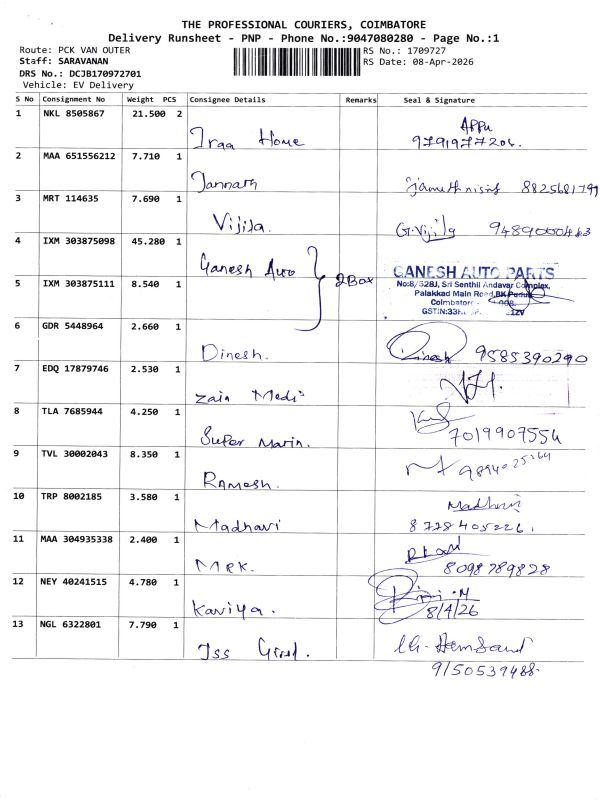 THE PROFESSIONAL COURIERS, COIMBATORE
Delivery Runsheet - PNP - Phone No.:9047080280 - Page No.:1
Route: PCK VAN OUTER
RS No.: 1709727
Staff: SARAVANAN
RS Date: 08-Apr-2026
DRS No.: DCJB170972701
Vehicle: EV Delivery
S No Consignment No Weight PCS Consignee Details Remarks Seal & Signature
1 NKL 8505867 21.500 2 Iraa Home Appu
9791977204.
2 MAA 651556212 7.710 1 Jannath 8825681799
3 MRT 114635 7.690 1 Vijila. G.Vijila 9489000463
4 IXM 303875098 45.280 1 Ganesh Auto 2Box GANESH AUTO PARTS
No:8/528J, Sri Senthil Andavar Complex,
Palakkad Main Road, BK Pudur
Coimbatore
5 IXM 303875111 8.540 1
6 GDR 5448964 2.660 1 Dinesh. Dinesh 9585390290
7 EDQ 17879746 2.530 1 Zain Medi
8 TLA 7685944 4.250 1 Super Marin. 7019907554
9 TVL 30002043 8.350 1 Ramesh. 9894025264
10 TRP 8002185 3.580 1 Madhavi Madhavi
8778405226.
11 MAA 304935338 2.400 1 MRK. 8098789828
12 NEY 40241515 4.780 1 Kaviya. 8/4/26
13 NGL 6322801 7.790 1 Jss
9150539488.